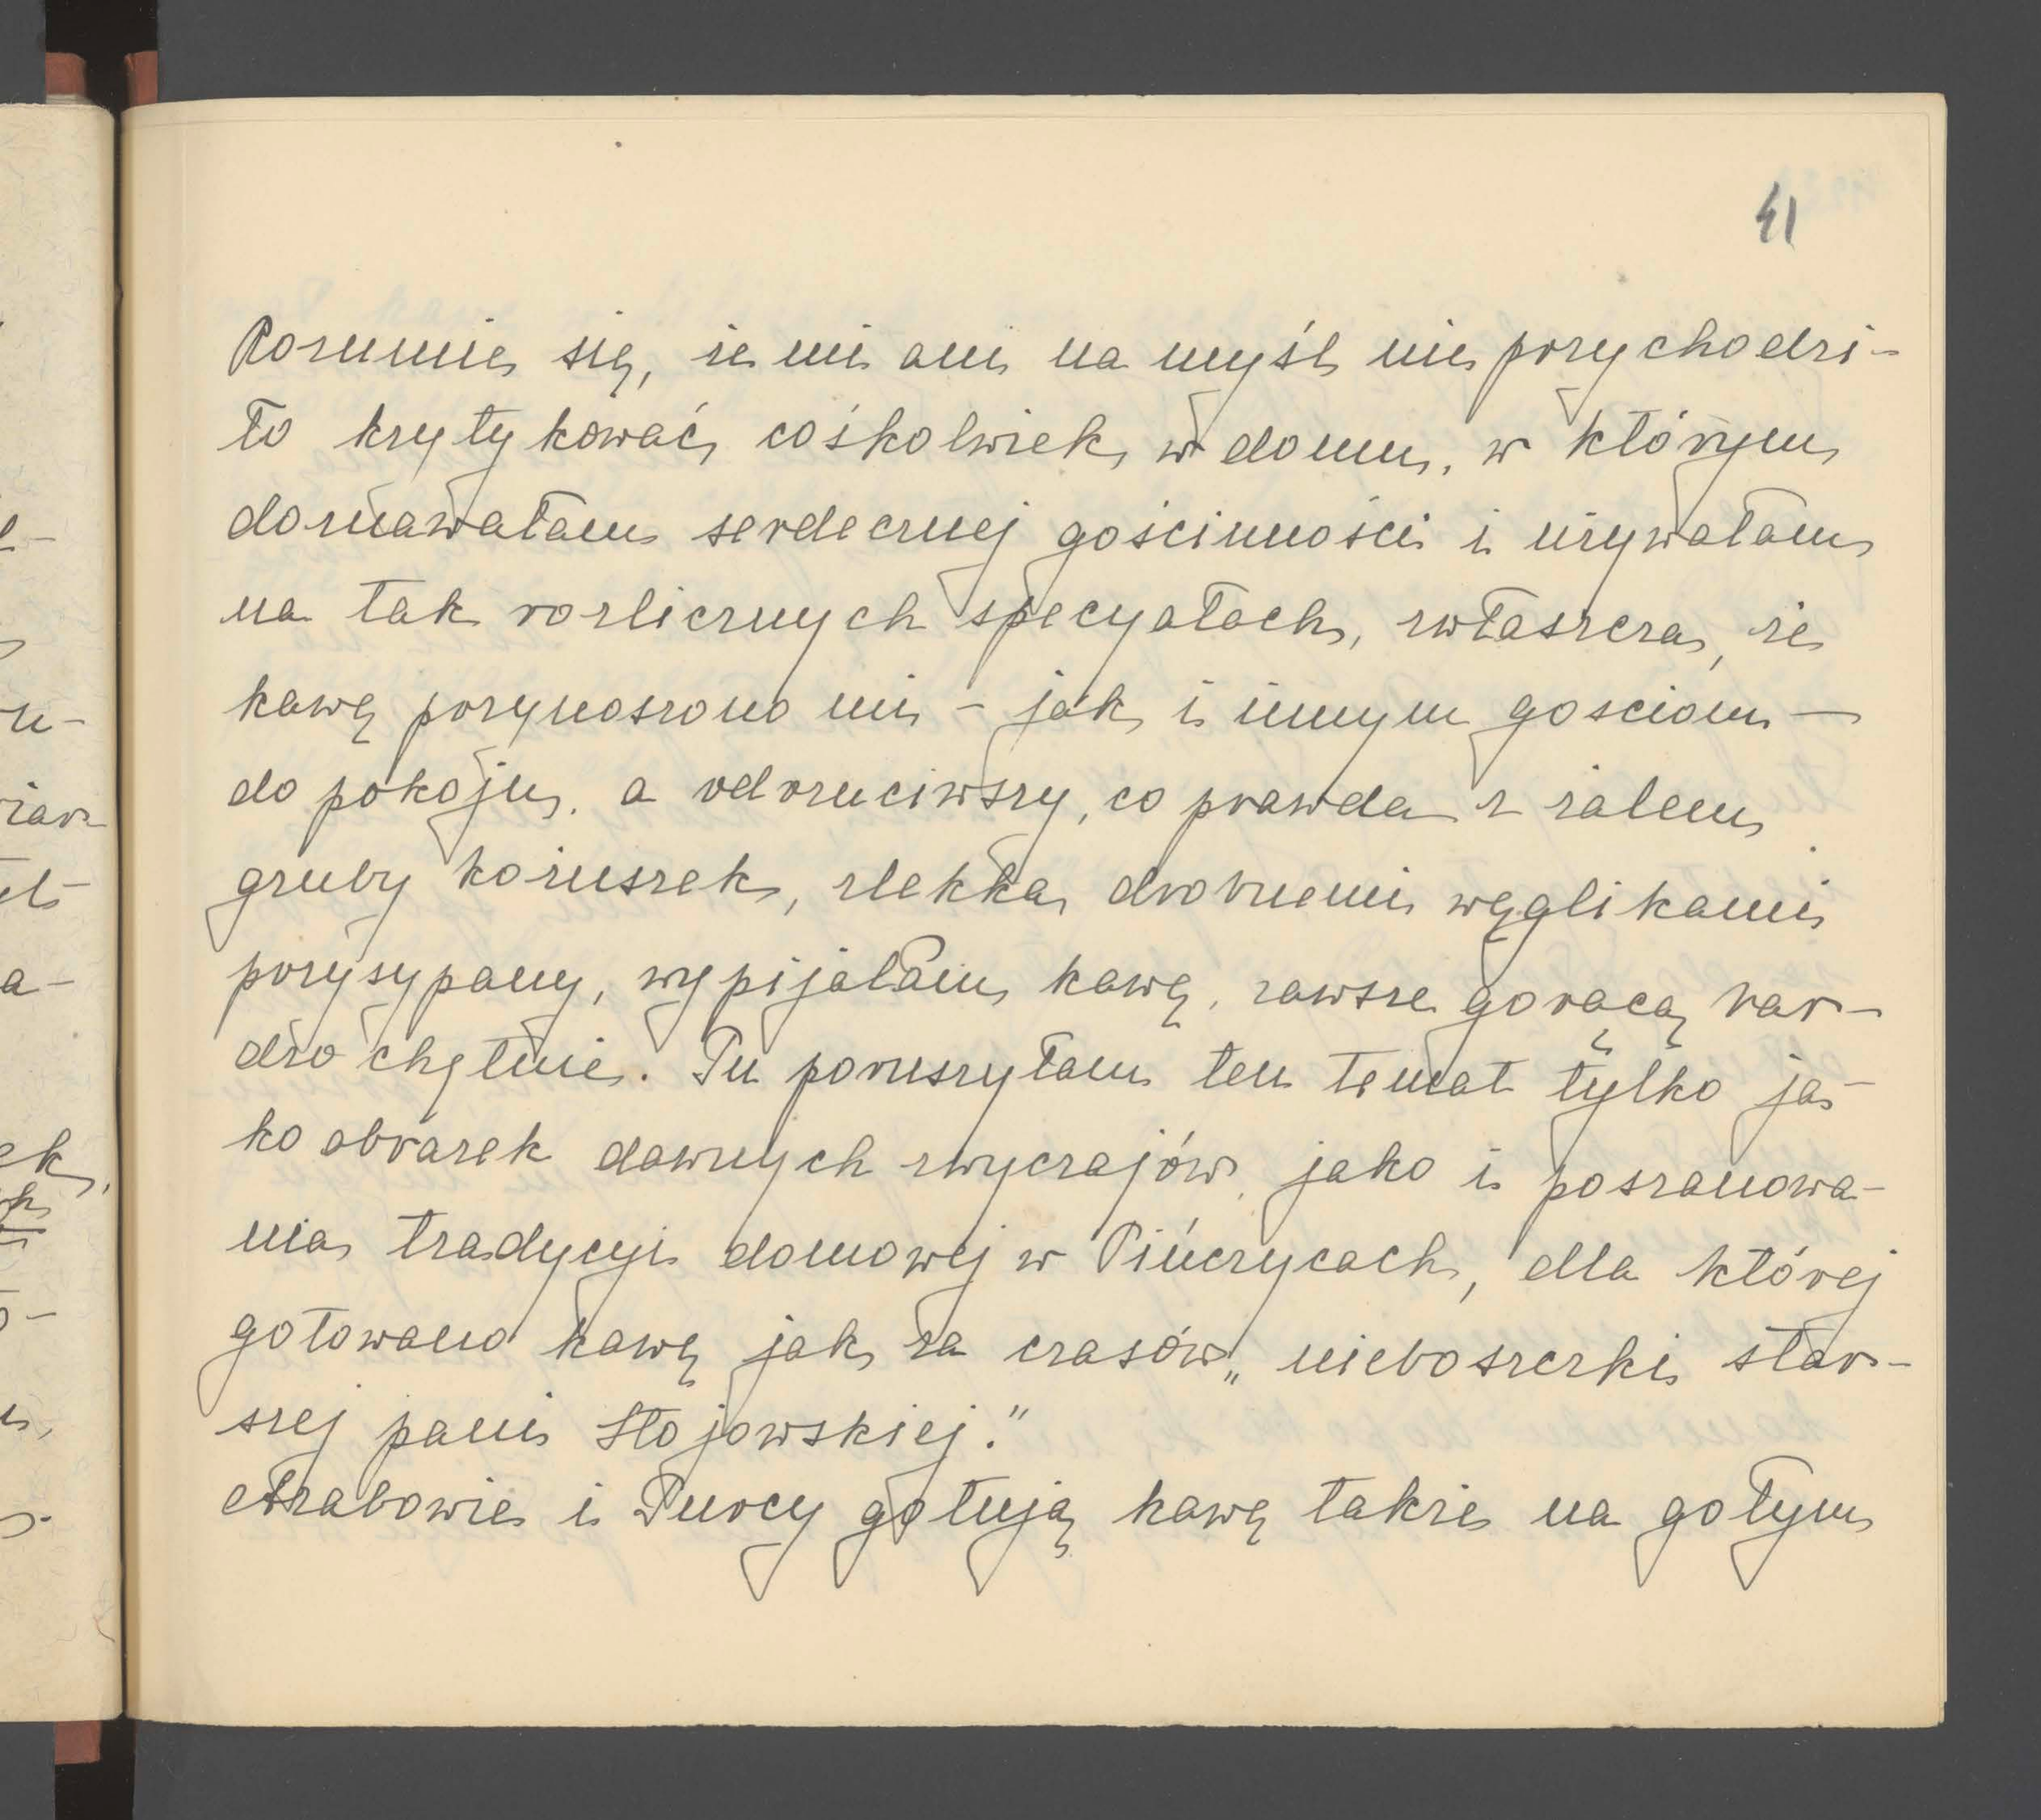 41
Rozumie się, że mi ani na myśl nie przychodzi-
ło krytykować cośkolwiek w domu, w którym
doznawałam serdecznej gościnności i używałam
na tak rozlicznych specyałach, zwłaszcza, że
kawę przynoszono mi - jak i innym gościom —
do pokoju, a odrzuciwszy, co prawda z żalem
gruby kożuszek, zlekka drobnemi węglikami
przysypany, wypijałam kawę, zawsze gorącą bar-
dzo chętnie. Tu poruszyłam ten temat tylko ja-
ko obrazek dawnych zwyczajów, jako i poszanowa-
nia tradycyi domowej w Pińczycach, dla której
gotowano kawę jak za czasów „nieboszczki star-
szej pani Stojowskiej."
Arabowie i Turcy gotują kawę także na gołym